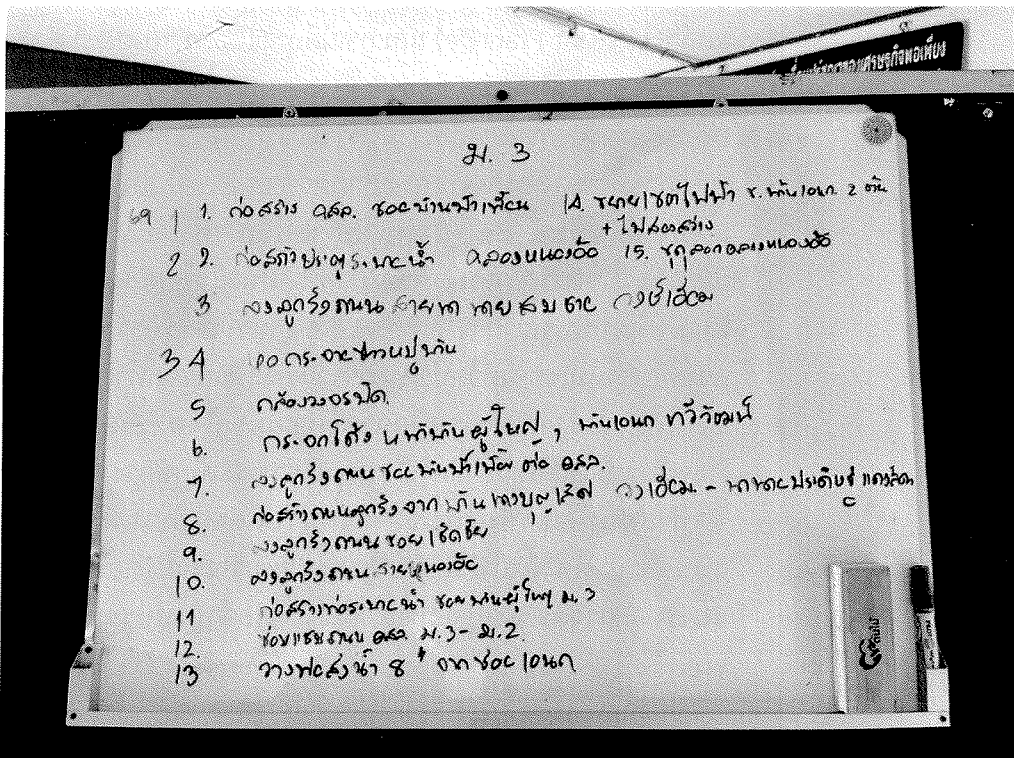 เศรษฐกิจพอเพียง
ม. 3
69 | 1. ก่อสร้าง คสล. ซอยบ้านฟ้าเพื่อน
14. ขยายเขตไฟฟ้า ซ.บ้านเอนก 2 ต้น
+ ไฟส่องสว่าง
2 2. ก่อสร้างประตูระบายน้ำ คลองหนองอ้อ
15. ขุดลอกคลองหนองอ้อ
3 ลงลูกรังถนน สายนา นายสมชาย วงษ์เอี่ยม
3 4 หอกระจายข่าวหมู่บ้าน
5 กล้องวงจรปิด
6. กระจกโค้ง หน้าบ้านผู้ใหญ่, บ้านเอนก ทวีวัฒน์
7. ลงลูกรังถนน ซอยบ้านฟ้าเพื่อน ต่อ คสล.
8. ก่อสร้างถนนลูกรัง จากบ้าน บุญเลิศ วงเอี่ยม - นานายประดิษฐ์
9. ลงลูกรังถนน ซอยเชิดชัย
10. ลงลูกรังถนน สายหนองอ้อ
11 ก่อสร้างท่อระบายน้ำ ซอยบ้านผู้ใหญ่ ม.3
12. ซ่อมแซมถนน คสล ม.3 - ม.2
13 วางท่อส่งน้ำ 8" จากซอยเอนก